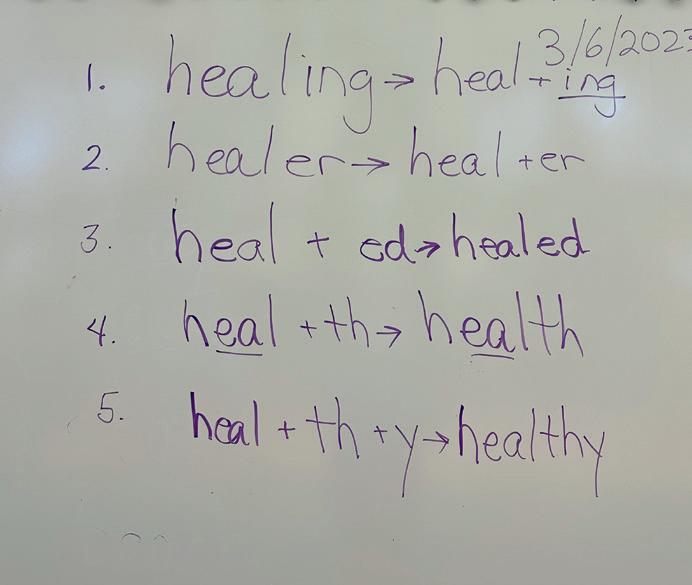 3/6/2023
1. healing → heal + ing
2. healer → heal + er
3. heal + ed → healed
4. heal + th → health
5. heal + th + y → healthy